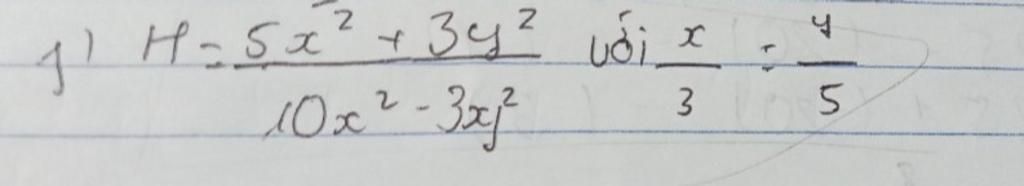 g) H = \frac{5x^2 + 3y^2}{10x^2 - 3xy^2} với \frac{x}{3} = \frac{y}{5}